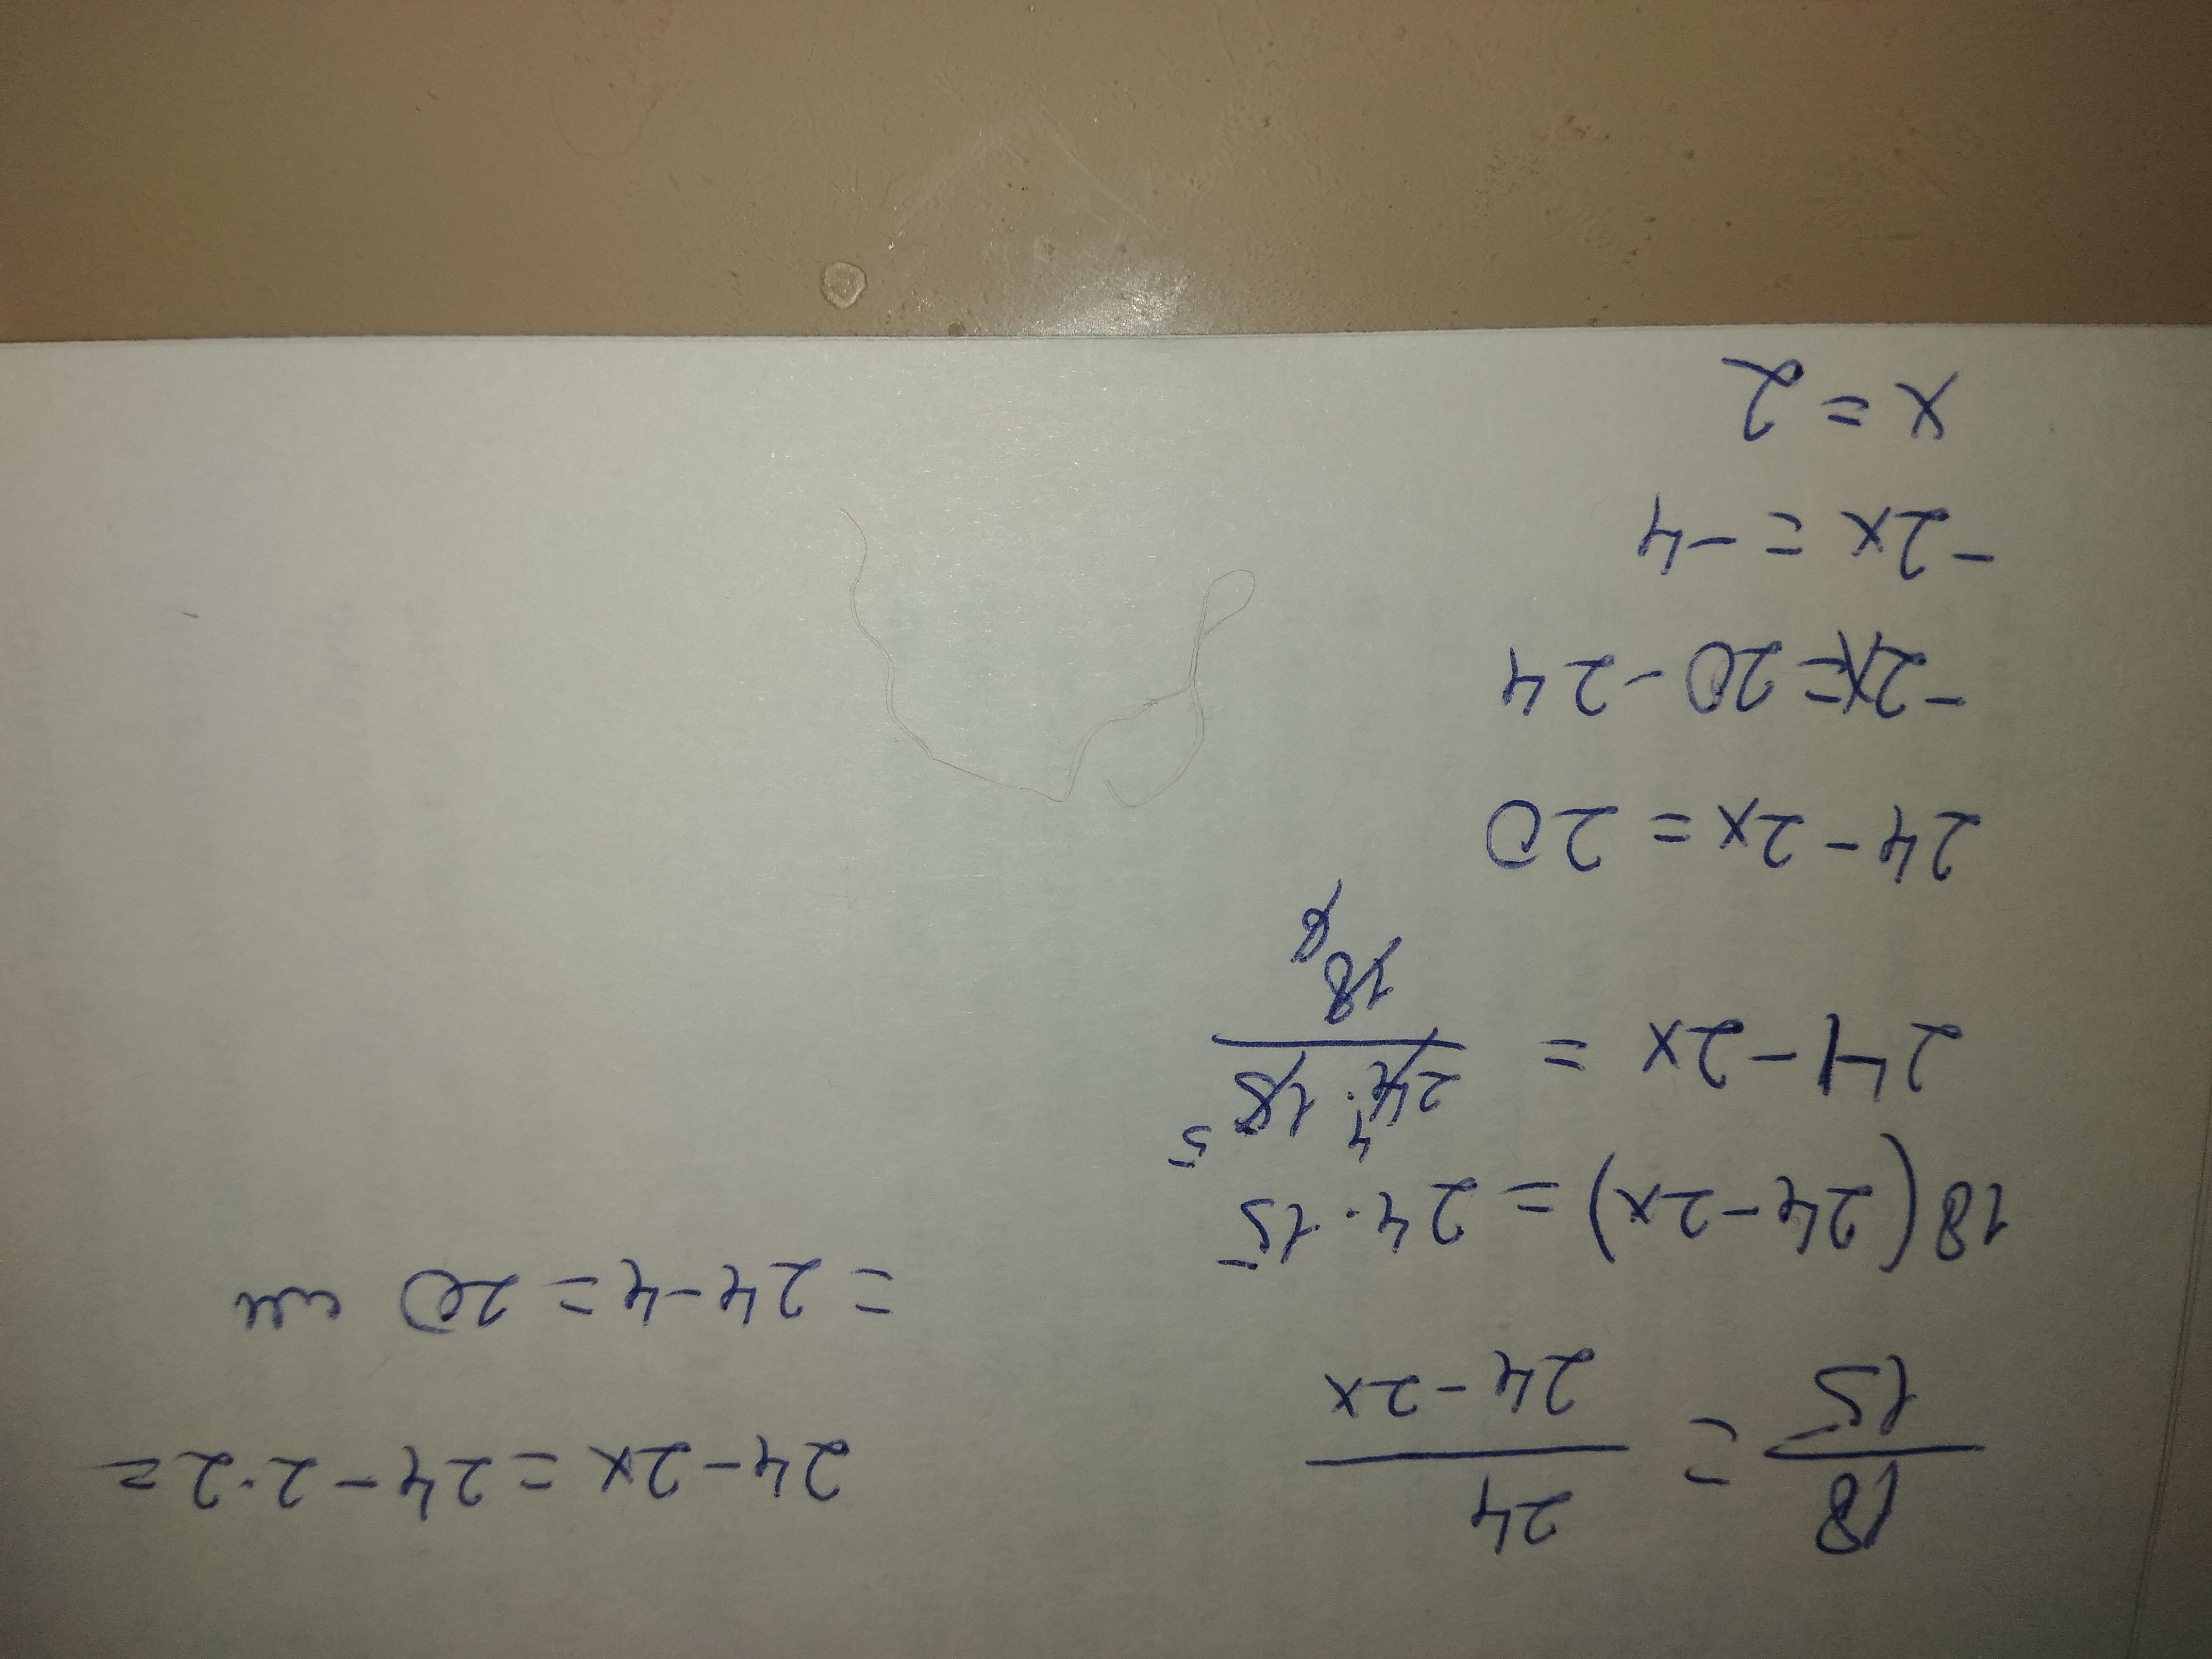 18/15 = 24/(24-2x)
18(24-2x) = 24·15
24-2x = (24·15)/18
24-2x = 20
-2x = 20-24
-2x = -4
x = 2
24-2x = 24-2·2 =
= 24-4 = 20 см